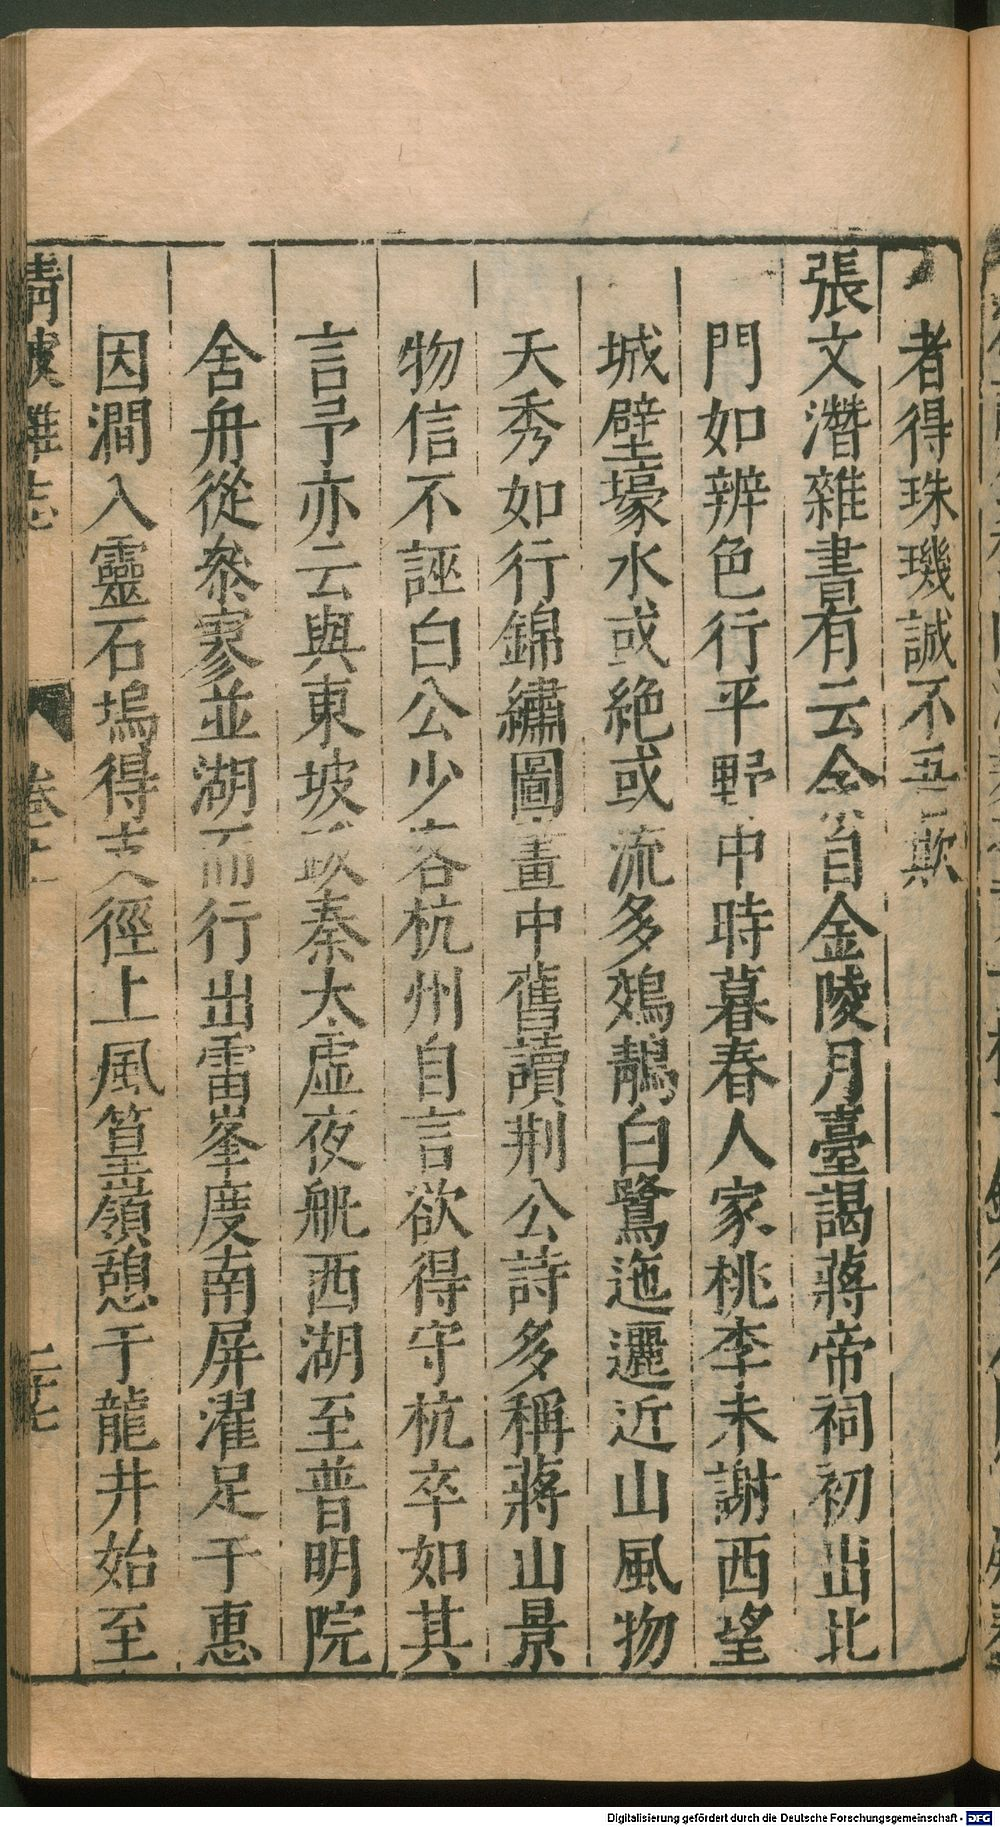 者得珠璣誠不吾欺
張文潛雜書有云余自金陵月臺謁蔣帝祠初出北
門如辨色行平野中時暮春人家桃李未謝西望
城壁壕水或絶或流多鵁鶄白鷺迤邐近山風物
天秀如行錦繡圖畫中舊讀荆公詩多稱蔣山景
物信不誣白公少客杭州自言欲得守杭卒如其
言予亦云與東坡 秦太虛夜航西湖至普明院
舍舟從叅寥並湖而行出雷峯度南屏濯足于惠
因澗入靈石塢得支徑上風篁嶺憩于龍井始至
清波雜志 卷 二十七
Digitalisierung gefördert durch die Deutsche Forschungsgemeinschaft - DFG